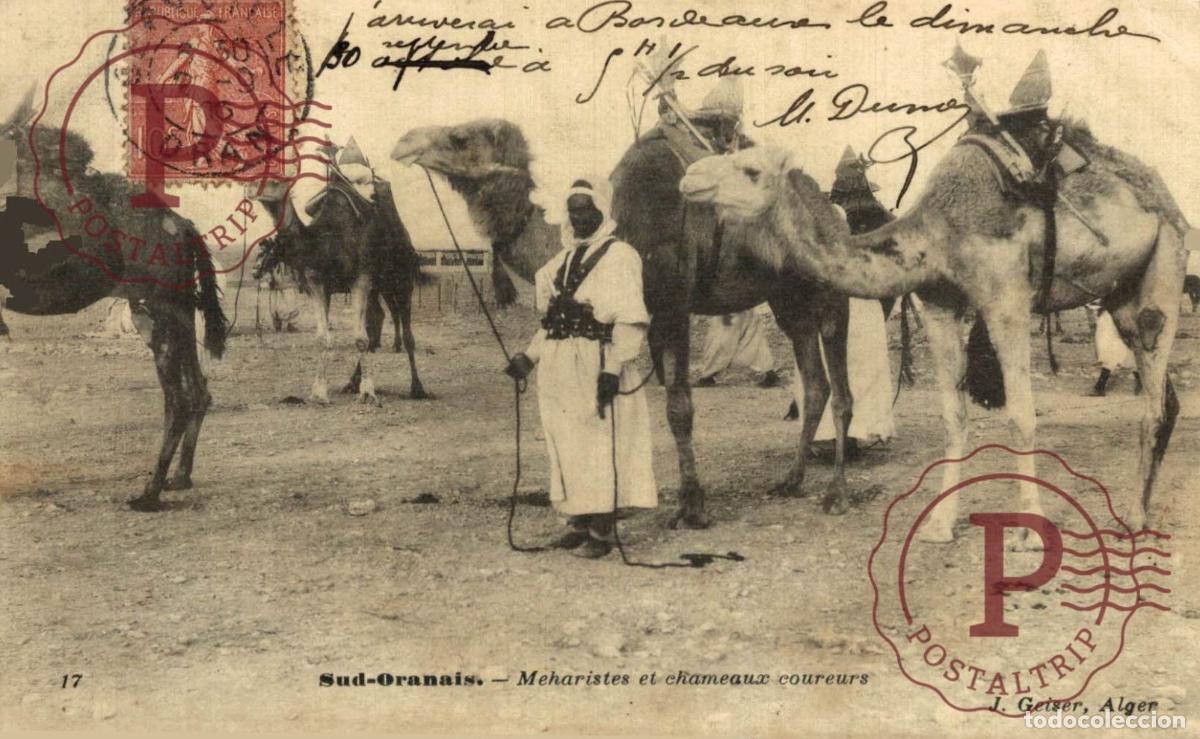 RÉPUBLIQUE FRANÇAISE
j'arriverai a Bordeaux le dimanche
30 septembre à 5 H 1/2 du soir
M.
P
POSTALTRIP
17
Sud-Oranais. — Meharistes et chameaux coureurs
J. Geiser, Alger
P
POSTALTRIP
todocoleccion